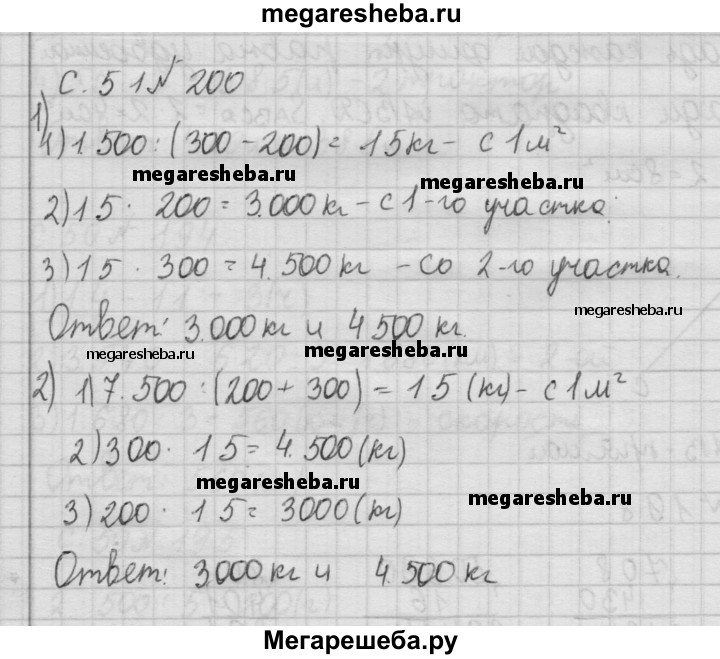 megaresheba.ru
с. 51 № 200
1)
1) 1.500 : (300 - 200) = 15кг - с 1м²
megaresheba.ru megaresheba.ru
2) 15 · 200 = 3.000 кг - с 1-го участка.
3) 15 · 300 = 4.500 кг - со 2-го участка.
megaresheba.ru
Ответ: 3.000 кг и 4500 кг.
megaresheba.ru megaresheba.ru
2) 1) 7.500 : (200 + 300) = 15 (кг) - с 1м²
2) 300 · 15 = 4.500 (кг)
megaresheba.ru megaresheba.ru
3) 200 · 15 = 3000 (кг)
Ответ: 3000 кг и 4.500 кг
Мегарешеба.ру